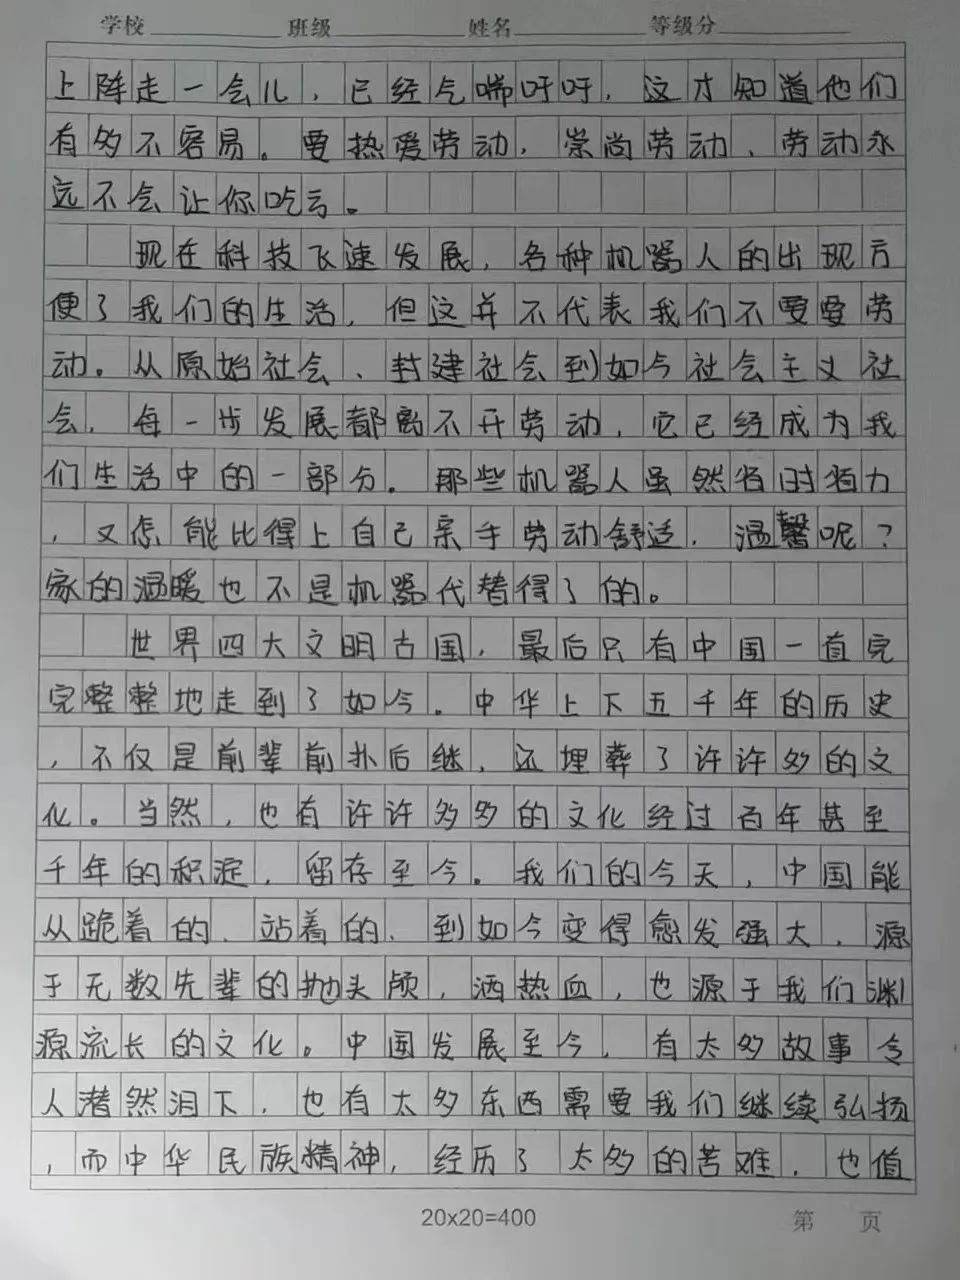 学校 班级 姓名 等级分
上阵走一会儿，已经气喘吁吁，这才知道他们
有多不容易。要热爱劳动，崇尚劳动、劳动永
远不会让你吃亏。
现在科技飞速发展，各种机器人的出现方
便了我们的生活，但这并不代表我们不要要劳
动。从原始社会、封建社会到如今社会主义社
会，每一步发展都离不开劳动，它已经成为我
们生活中的一部分。那些机器人虽然省时省力
，又怎能比得上自己亲手劳动舒适，温馨呢？
家的温暖也不是机器代替得了的。
世界四大文明古国，最后只有中国一直完
完整整地走到了如今。中华上下五千年的历史
，不仅是前辈前扑后继，还埋葬了许许多的文
化。当然，也有许许多多的文化经过百年甚至
千年的积淀，留存至今。我们的今天，中国能
从跪着的、站着的、到如今变得愈发强大，源
于无数先辈的抛头颅，洒热血，也源于我们渊
源流长的文化。中国发展至今，有太多故事令
人潜然泪下，也有太多东西需要我们继续弘扬
，而中华民族精神，经历了太多的苦难，也值
20x20=400
第 页